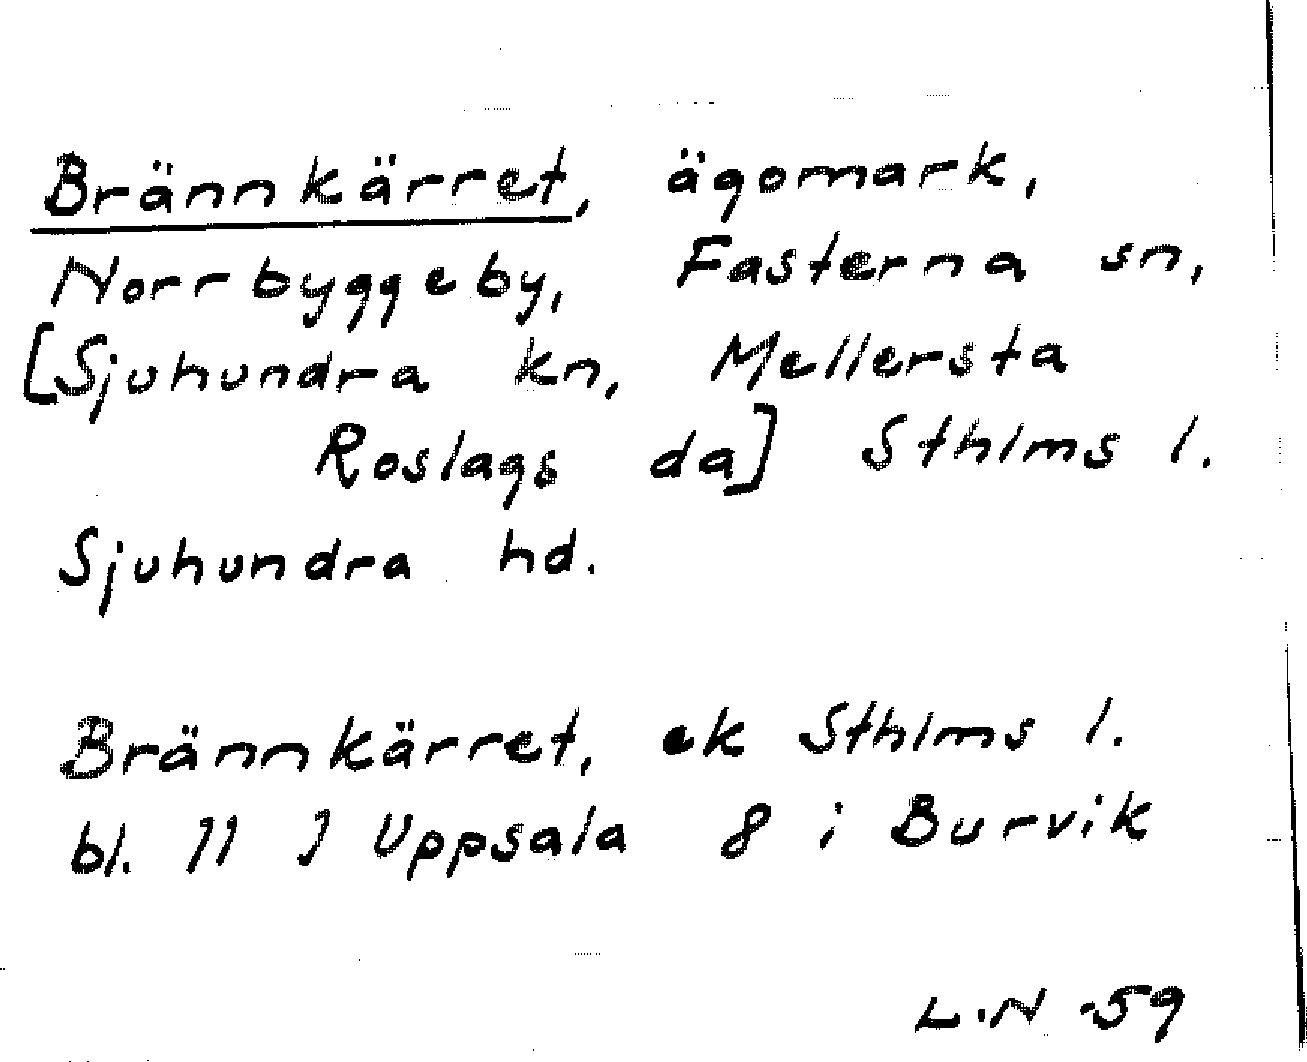 Brännkärret, ägomark,
Norrbyggeby, Fasterna sn,
[Sjuhundra kn, Mellersta
Roslags da] Sthlms l.
Sjuhundra hd.
Brännkärret, ek Sthlms l.
bl. 11 J Uppsala 8 i Burvik
L.N -59